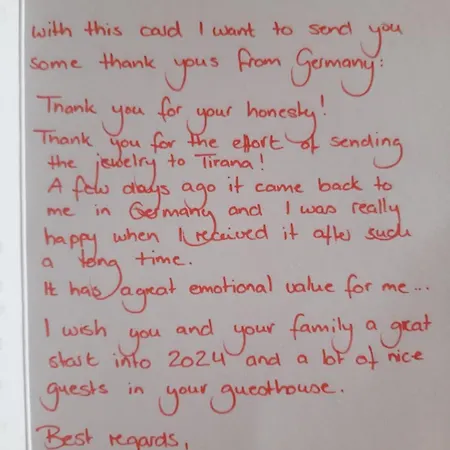 with this card I want to send you
some thank yous from Germany:
Thank you for your honesty!
Thank you for the effort of sending
the jewelry to Tirana!
A few days ago it came back to
me in Germany and I was really
happy when I received it after such
a long time.
It has a great emotional value for me...
I wish you and your family a great
start into 2024 and a lot of nice
guests in your guesthouse.
Best regards,